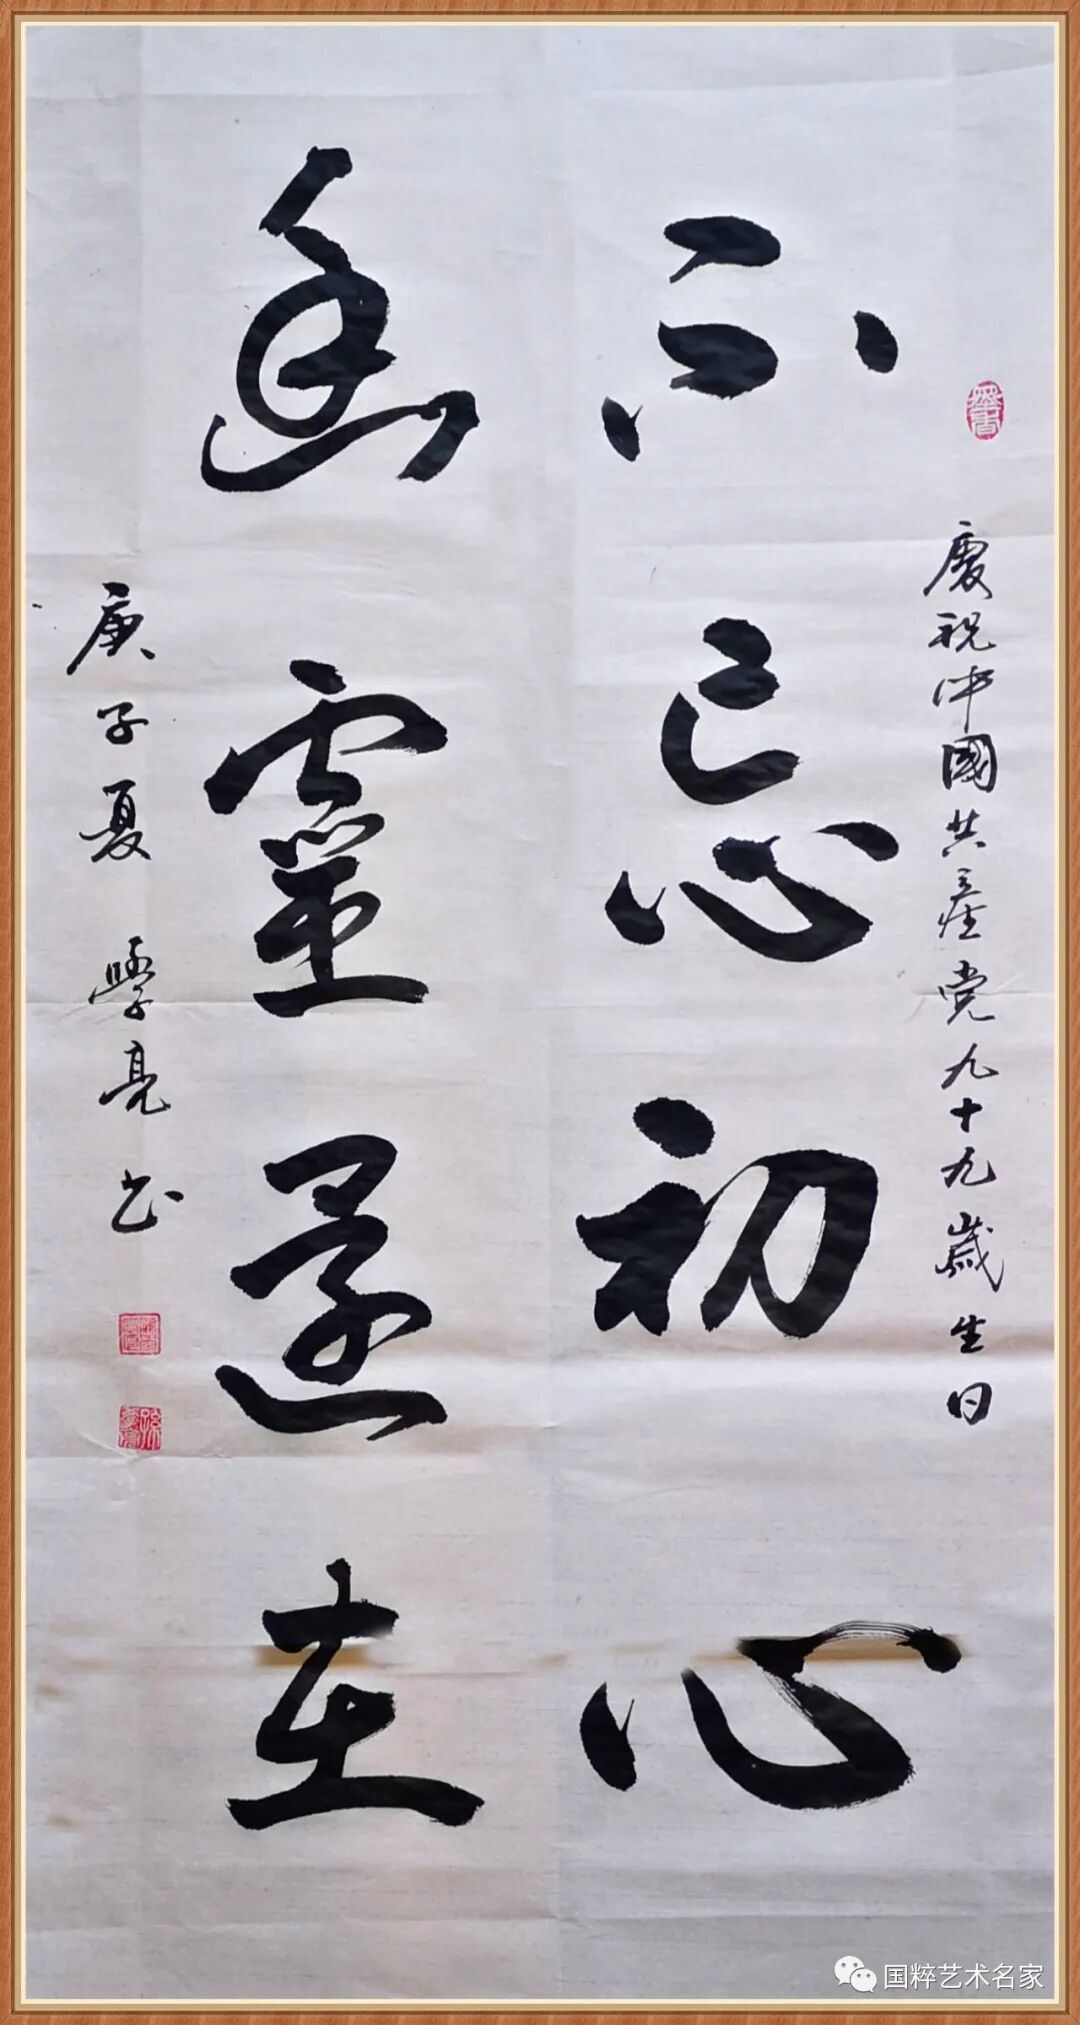 慶祝中國共產党九十九歲生日
不忘初心
幽靈還在
庚子夏 學亮书
国粹艺术名家